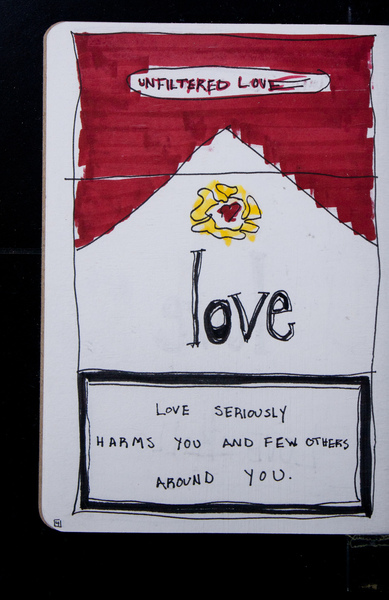 UNFILTERED LOVE
love
LOVE SERIOUSLY
HARMS YOU AND FEW OTHERS
AROUND YOU.